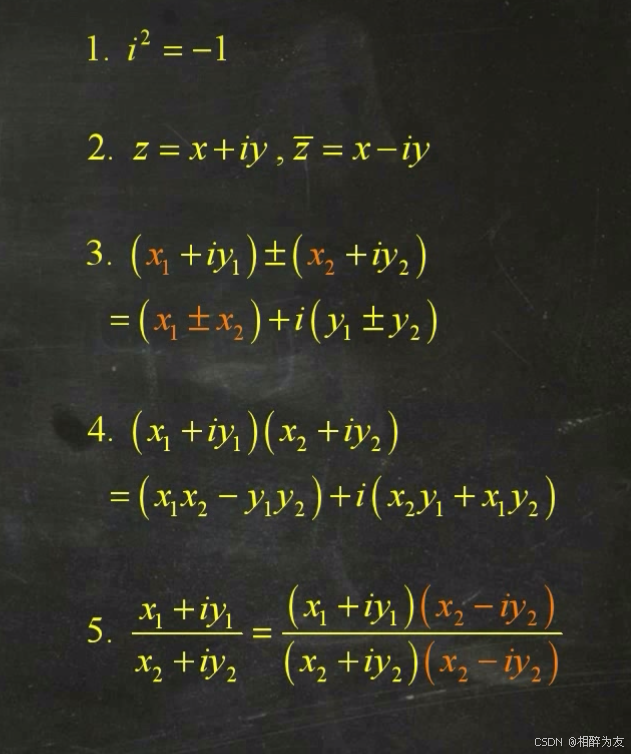 1. i² = −1
2. z = x+iy , z̅ = x−iy
3. (x₁ +iy₁)±(x₂ +iy₂)
=(x₁ ±x₂)+i(y₁ ±y₂)
4. (x₁ +iy₁)(x₂ +iy₂)
=(x₁x₂ − y₁y₂)+i(x₂y₁ +x₁y₂)
5. (x₁ +iy₁)/(x₂ +iy₂) = (x₁ +iy₁)(x₂ −iy₂)/(x₂ +iy₂)(x₂ −iy₂)
CSDN @相醉为友